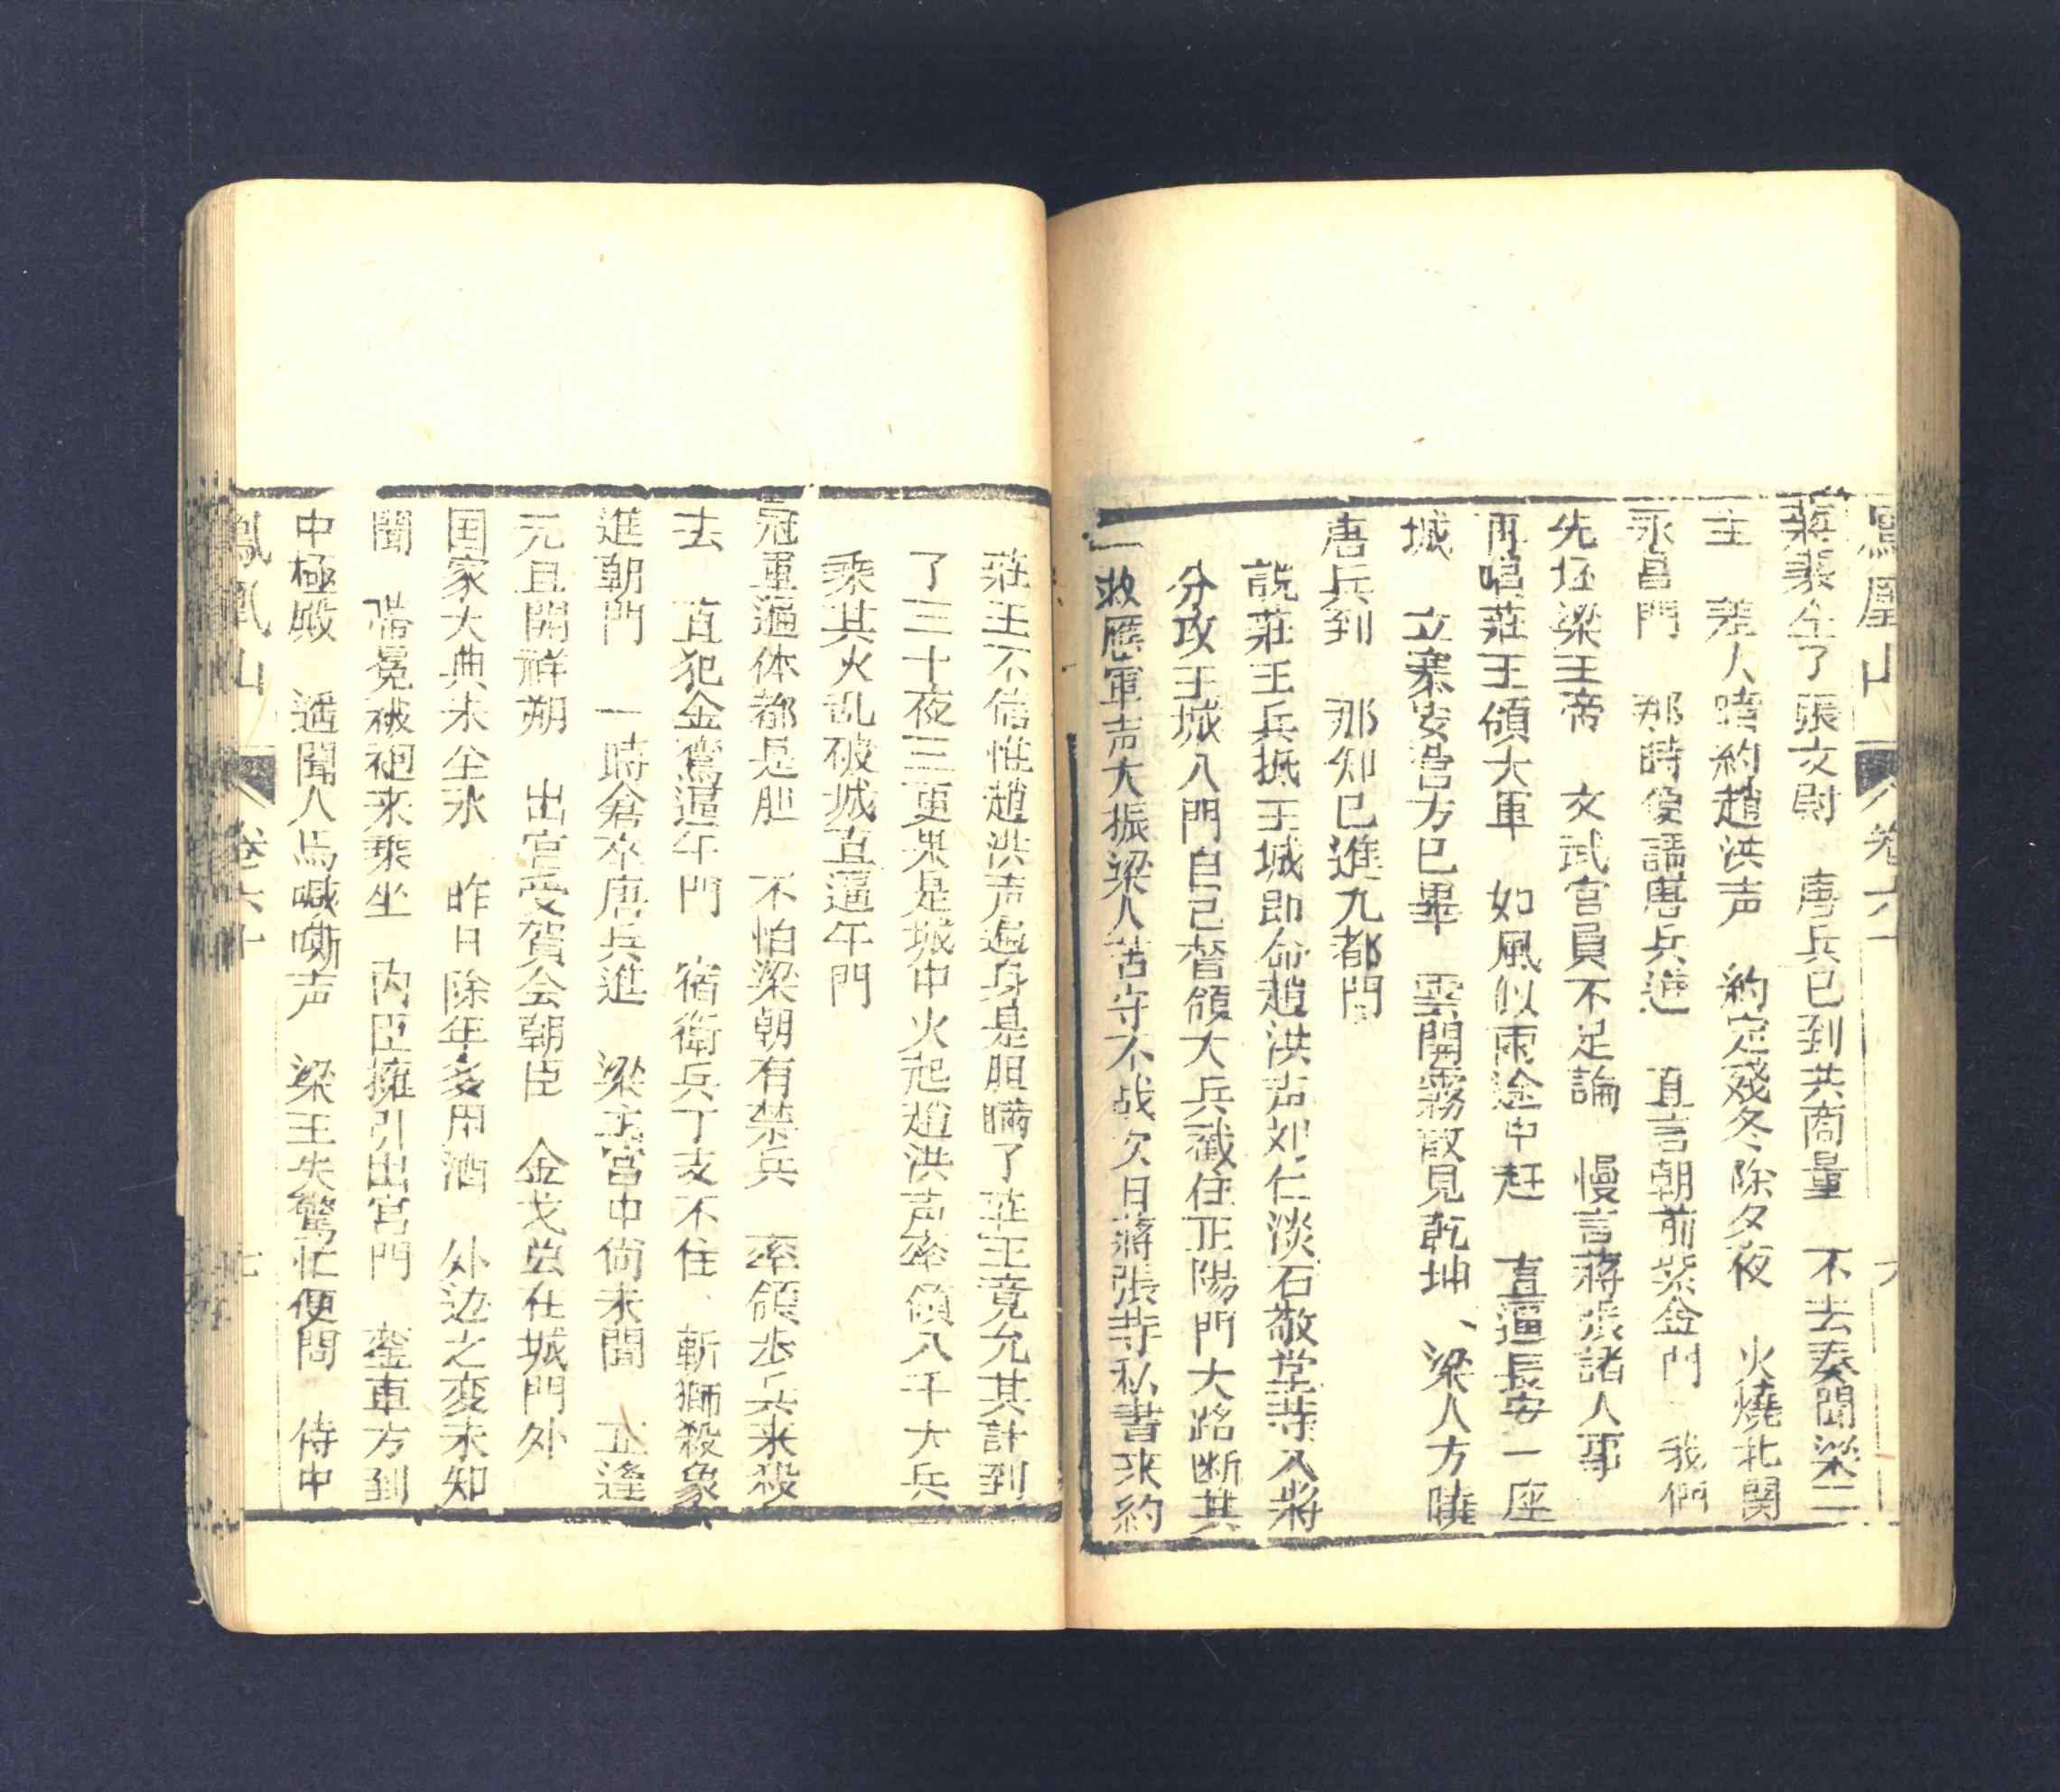 鳳凰山 卷六十 六
蔣裴仝了張文尉 唐兵已到共商量 不去奏聞梁二
主 差人暗約趙洪声 約定殘冬除夕夜 火燒北関
永昌門 那時便請唐兵進 直言朝前紫金門 我們
先拯梁王帝 文武官員不足論 慢言蔣張諸人事
再唱莊王領大軍 如風似雨途中赶 直逼長安一座
城 立寨安营方已畢 雲開霧散見乾坤、梁人方曉
唐兵到 那知已進九都門
說莊王兵抵王城即命趙洪声刘仁淡石敬堂等入將
分攻王城八門自己督領大兵截住正陽門大路断其
一救應軍声大振梁人苦守不战次日蔣張等私書来約
莊王不信惟趙洪声遍身是胆瞒了莊王竟允其計到
了三十夜三更果是城中火起趙洪声率領八千大兵
乘其火乱破城直逼午門
冠軍遍体都是胆 不怕梁朝有禁兵 率領步兵来殺
去 直犯金鸞逼午門 宿衛兵丁支不住、斬獅殺象
進朝門 一時倉卒唐兵進 梁主宮中尚未聞 正逢
元旦開祥朔 出宮受賀会朝臣 金戈总在城門外
国家大典未全氷 昨日除年多用酒 外边之变未知
聞 帶冕被袍来乘坐 內臣擁引出宮門 銮車方到
中極殿 遥聞人馬喊嘶声 梁王失驚忙便問 侍中
鳳凰山 卷六十 七